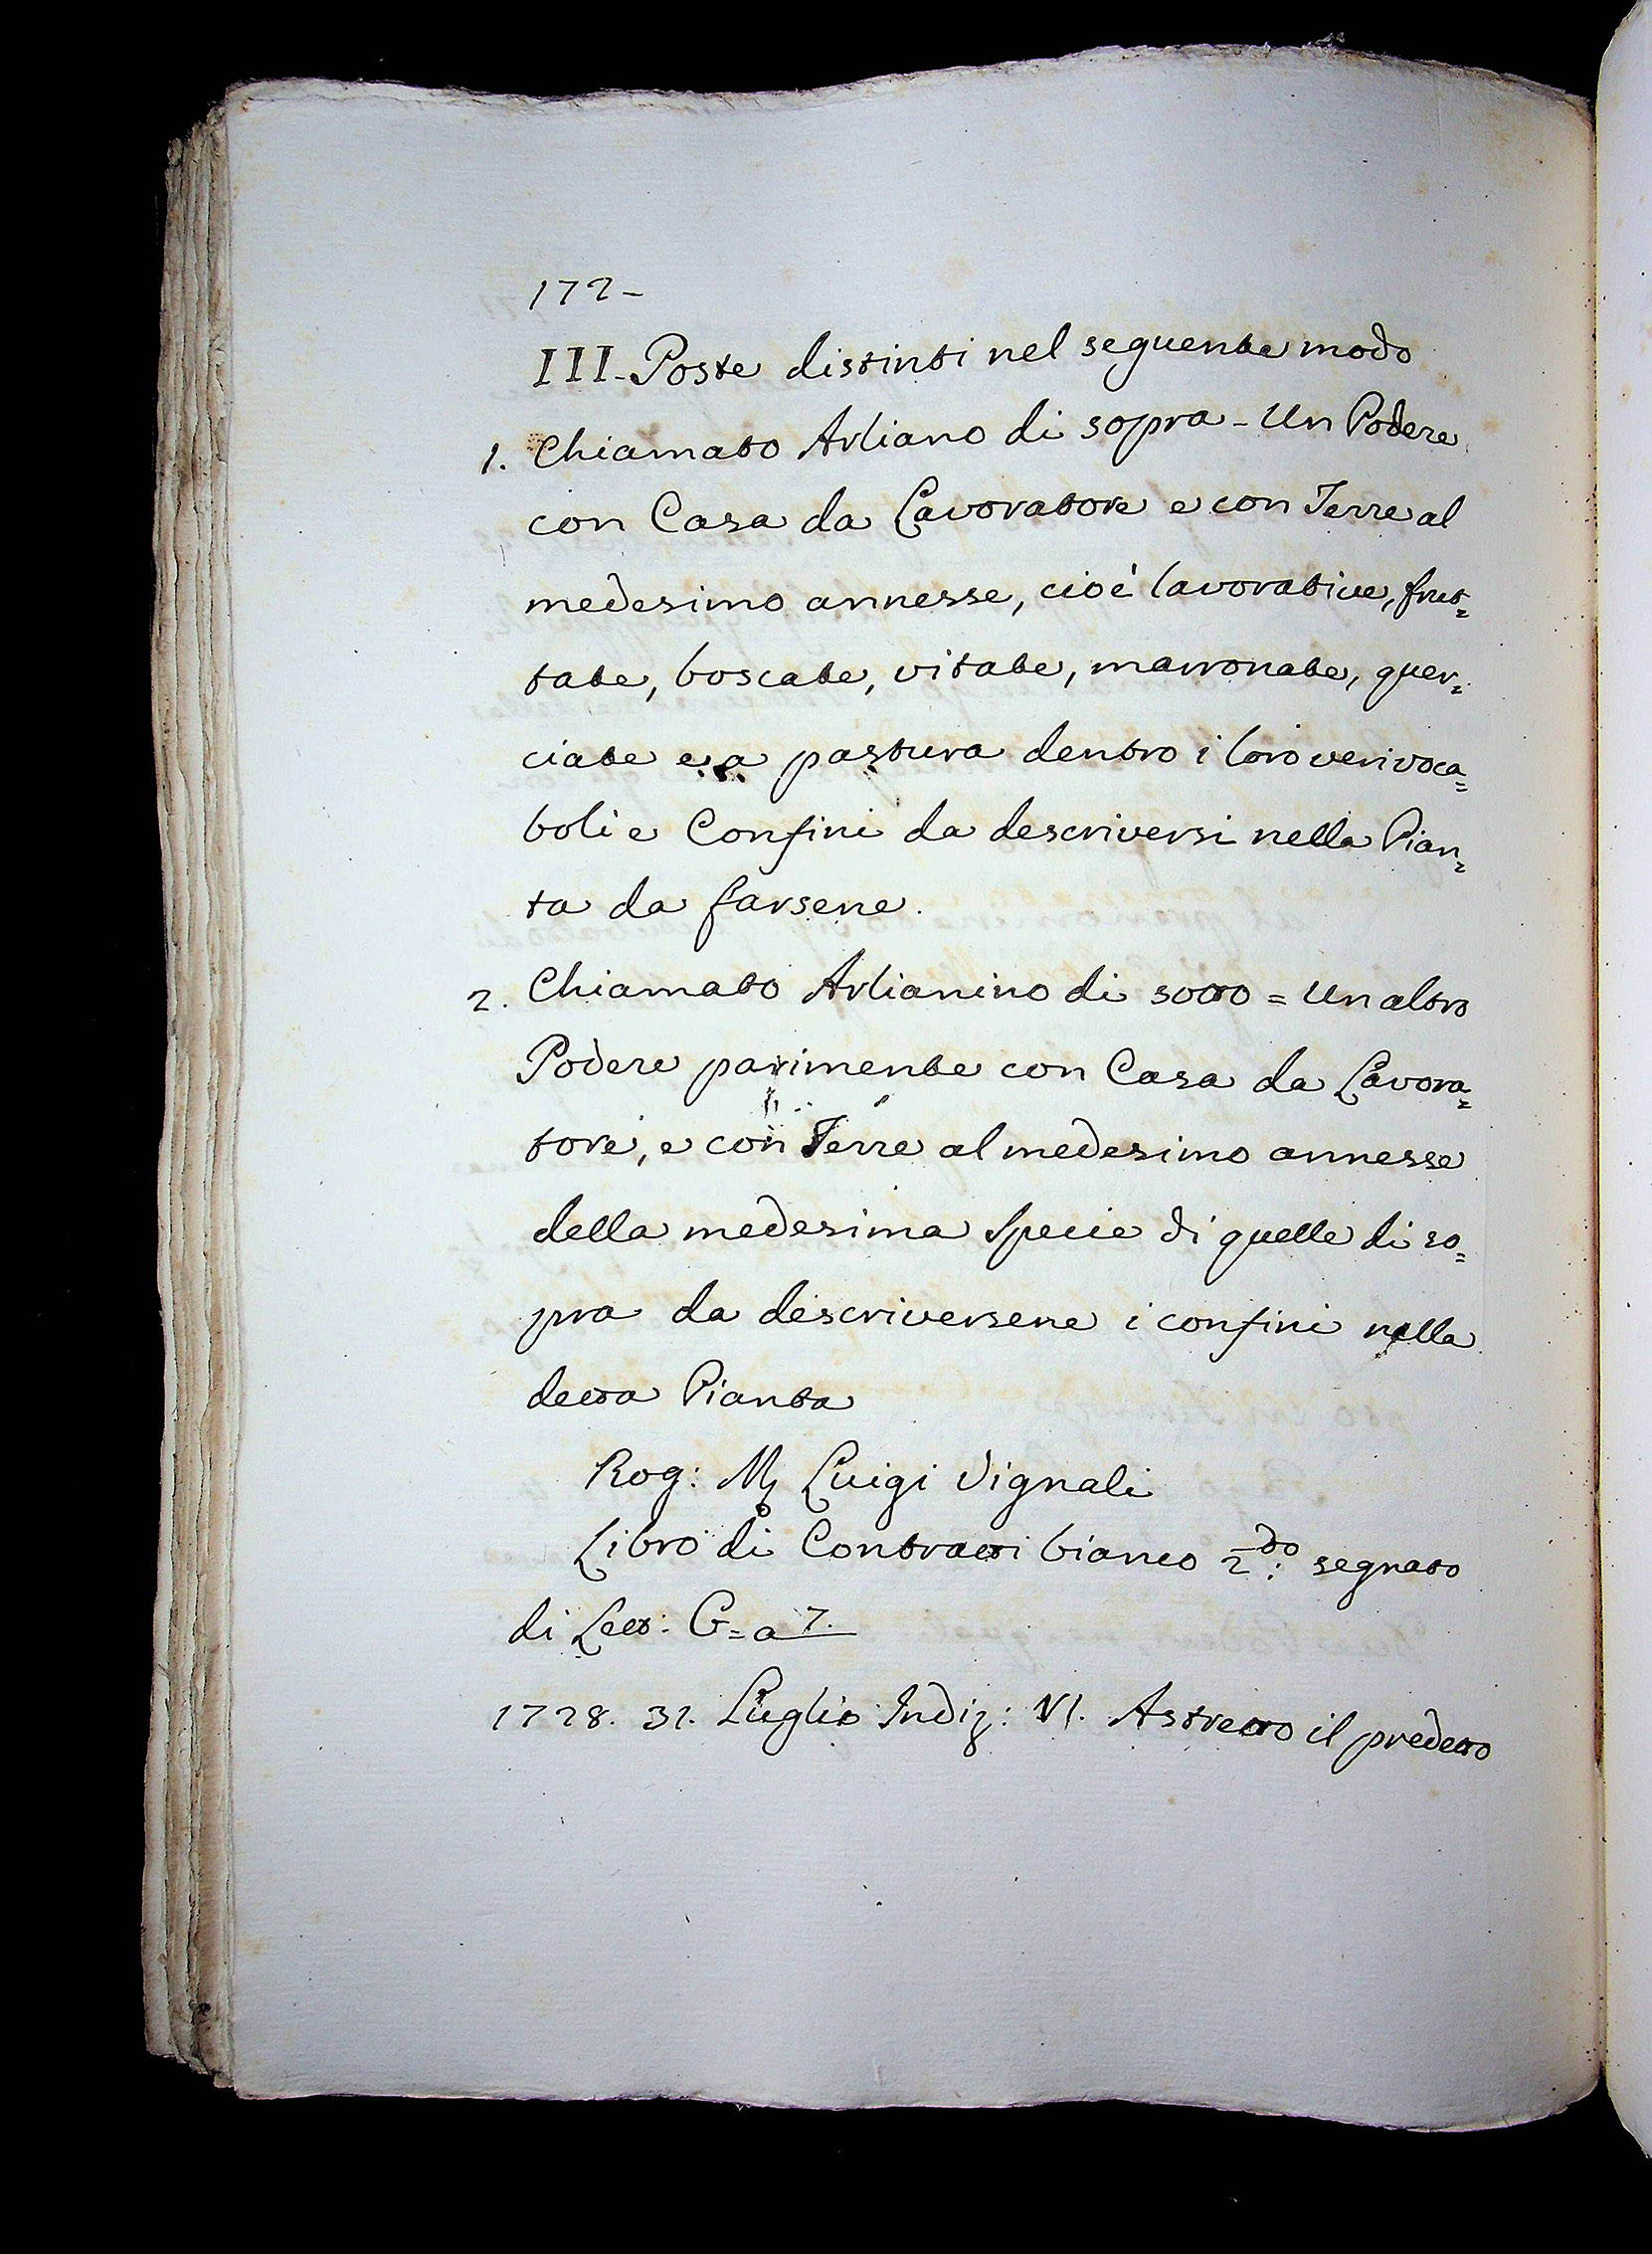 172-
III-Poste distinti nel seguente modo
1. Chiamato Arliano di sopra - Un Podere
con Casa da Lavoratore e con Terre al
medesimo annesse, cioè lavorative, frut=
tate, boscate, vitate, marronate, quer=
ciate e a pastura dentro i loro veri voca=
boli e Confini da descriversi nella Pian=
ta da farsene.
2. Chiamato Arlianino di sotto = Un altro
Podere parimente con Casa da Lavora=
tore, e con Terre al medesimo annesse
della medesima Specie di quelle di so=
pra da descriversene i confini nella
detta Pianta
Rog: Luigi Vignali
Libro di Contratti bianco 2do: segnato
di Lett: G=a 7.
1728. 31. Luglio Indiz: VI. Astretto il predetto